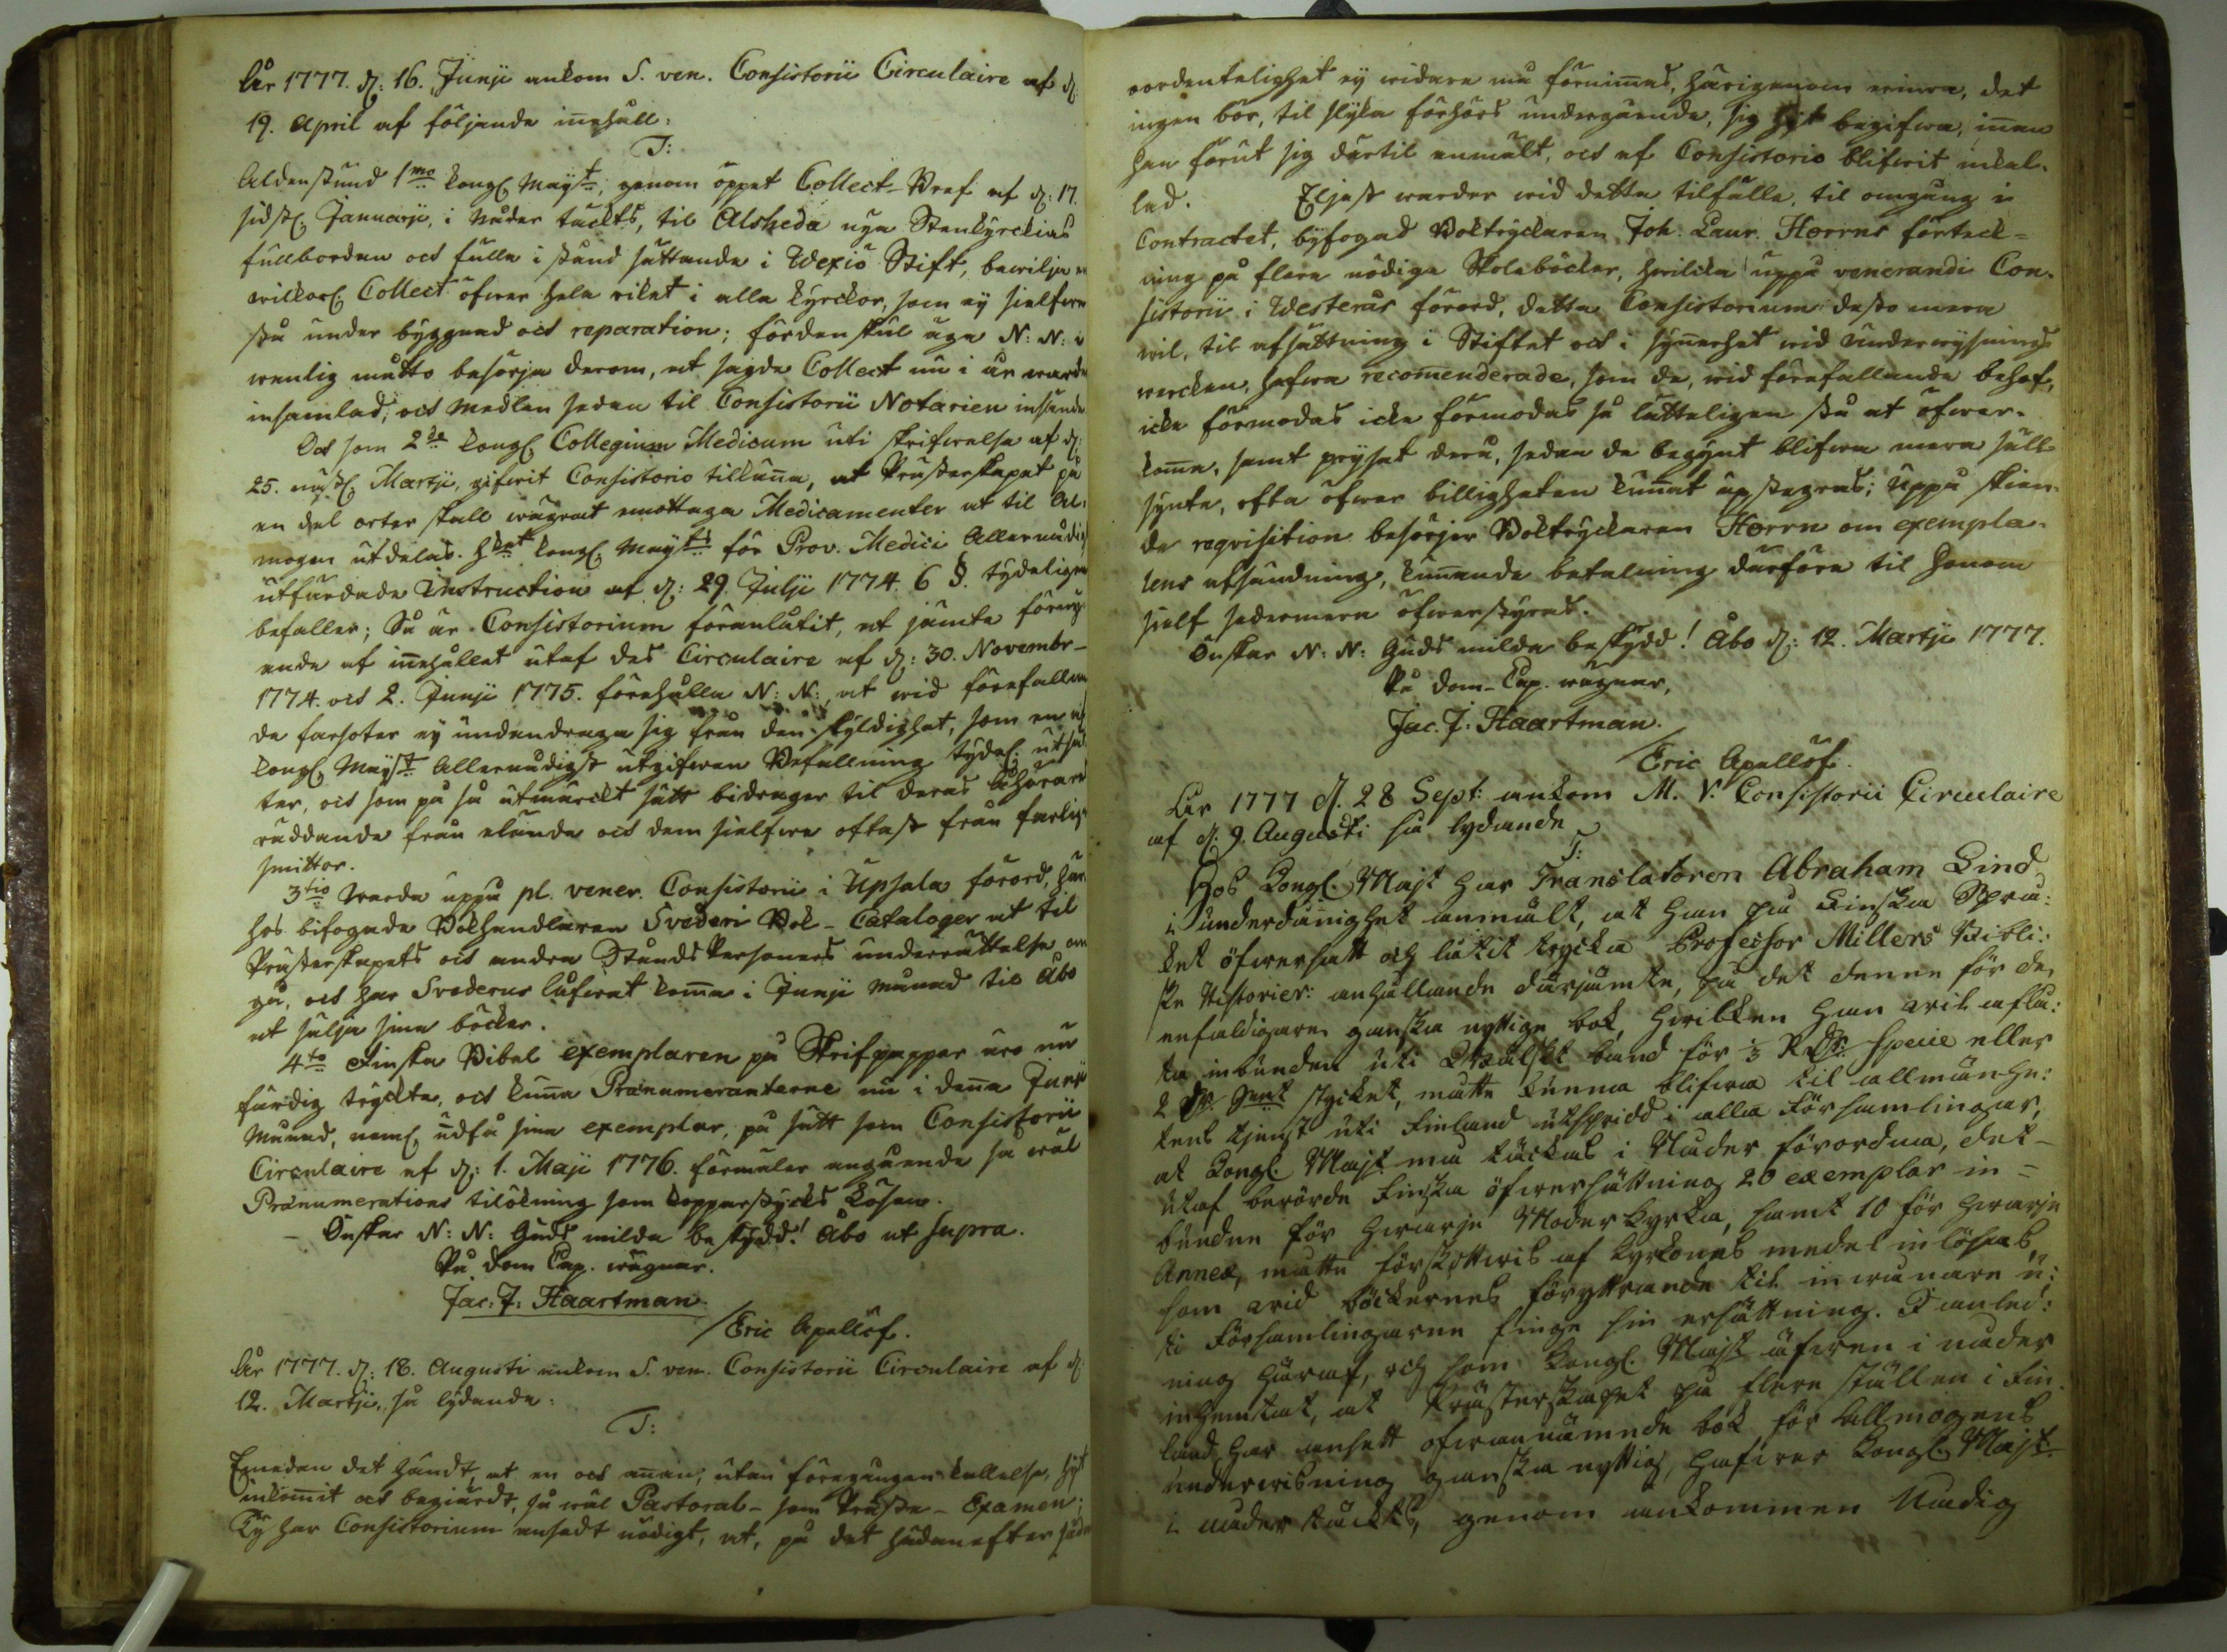 År 1777. d: 16. Junii ankom S. ven. Consistorii Circulaire af d:
19. April af följande inehåll:
T:
Aldenstund 1mo kongl. Mayt:, genom öppet Collect-Bref af d: 17.
sidstl. Januarii, i Nåder täckts, til Alsheda nya Stenkyrckias
fullbordan och fulla i stånd sättande i Wexiö Stift, bewilja en
wilckorl. Collect öfwer hela riket i alla kyrckor, som ey sielfwa
stå under byggnad och reparation; fördenskul äga N: N: i
wanlig måtto besörja derom, at sagde Collect nu i år warder
insamlad, och medlen sedan til Consistorii Notarien insände
Och som 2do kongl. Collegium Medicum uti skrifwelse af d:
25. nästl. Martii, gifwit Consistorio tilkäna, at Prästerskapet på
en del orter skall wägrat emottaga Medicamenter at til All-
mogen utdelas. hwat kongl. Mayts för Prov. Medici Allernådigst
utfärdade Instruction af d: 29. Julii 1774. 6 §. tydeligen
befaller; Så är Consistorium föranlåtit, at jämte förny-
ande af inehållet utaf des Circulaire af d: 30. Novembr-
1774. och 2. Junii 1775. förehålla N: N:, at wid förefallan
de farsoter ey undandraga sig från den skyldighet, som en af
kongl. Mayst Allernådigst utgifwen Befallning tydel. utsät
ter, och som på så utmärckt sätt bidrager til deras Åhörares
räddande från elände och dem sielfwa oftast från farlige
smittor.
3tio Warda uppå pl. vener. Consistorii i Upsala förord, här
hos bifogade Bokhandlaren Svederi Bok-Cataloger at til
Prästerskapets och andra Stånds Personers underrättelse om
gå, och har Svederus lofwat koma i Junii månad til Åbo
at sälja sina böcker.
4to Finska Bibel exemplaren på Skrifpapper äro nu
färdig tryckta, och kuna Pränumeranterne nu i dena Junii
Månad, neml. udfå sina exemplar, på sätt som Consistorii
Circulaire af d: 1. Maji 1776. förmäler angående så wäl
Pränumerations tilökning som kopparstycks kåsan.
Önskar N: N: Guds milda beskydd! Åbo ut supra.
På Dom Cap. wägnar.
Jac: J: Haartman.
/Eric Apellöf.
År 1777. d: 18. Augusti ankom S. ven. Consistorii Circulaire af d:
12. Martii, så lydande:
T:
Emedan det händt, at en och anan, utan föregången kallelse, hit
inkomit och begiärdt, så wäl Pastoral- som Präste-Examen;
Ty har Consistorium ansedt nödigt, at, på det hädanefter sådan
oordentelighet ey widare må förnimas, härigenom erinra, det
ingen bör, til slyka förhörs undergående, sig hit begifwa, inan
han förut sig dertil anmält, och af Consistorio blifwit inkal-
lad. Eljest warder wid detta tilfälle, til omgång i
Contractet, byfogad Boktryckaren Joh. Laur. Horrns förteck-
ning på flera nödiga Skoleböcker, hwilcka uppå venerandi Con-
sistorii i Westerås förord, detta Consistorium desto mera
wil, til afsättning i Stiftet och i synerhet wid Underwysnings
wercken, hafwa recomenderade, som de, wid förefallande behof,
icke förmodas icke förmodas så lätteligen stå at öfwer-
koma, samt pryset dera, sedan de begynt blifwa mera säll-
synte, ofta öfwer billigheten kunat upstegras; Uppå sken-
de reqvisition besörjer Boktryckaren Horrn om exempla-
rens afsändning, kunande betalning därföre til honom
sielf sedermera öfwerstyras.
Önskar N: N: Guds milda beskydd! Åbo d: 12. Martii 1777.
På Dom-Cap. wägnar,
Jac. J: Haartman.
/Eric Apellöf.
År 1777 d. 28 Sept: ankom M. V. Consistorii Circulaire
af d: 9. Augusti så lydande
T:
Hos Kongl. Majt har Translatoren Abraham Lind
i underdånighet anmält, at han på Finska Språ:
ket öfwersatt och låtit trycka Professor Millers Bibli:
ske Historier: anhållande därjämte, på det denne för de
enfaldigare ganska nyttige bok, hwilken han wil aflå:
ta inbunden uti Wälskt band för 1/3 RDr: Specie eller
2 Dr. Smt stycket, måtte kunna blifwa til allmänhe:
tens tjenst uti Finland utspridd i alla Församlingar,
at Kongl. Majt må täckas i Nåder förordna, det-
utaf berörde Finska öfwersättning 20 exemplar in-
bundne för hwarje Moder kyrka, samt 10 för hwarje
Annex, måtte förskottwis af kyrkones medel inlösas,
som wid böckernes föryttrande til inwånare u:
ti Församlingarne finge sin ersättning. I anled:
ning häraf, och som Kongl. Majt äfwen i nåder
inhemtat, at Prästerskapet på flere ställen i Fin
land har ansett ofwannämnde bok för allmogens
underwisning ganska nyttig, hafwer Kongl. Majt
i nåder täckts, genom ankommen Nådig